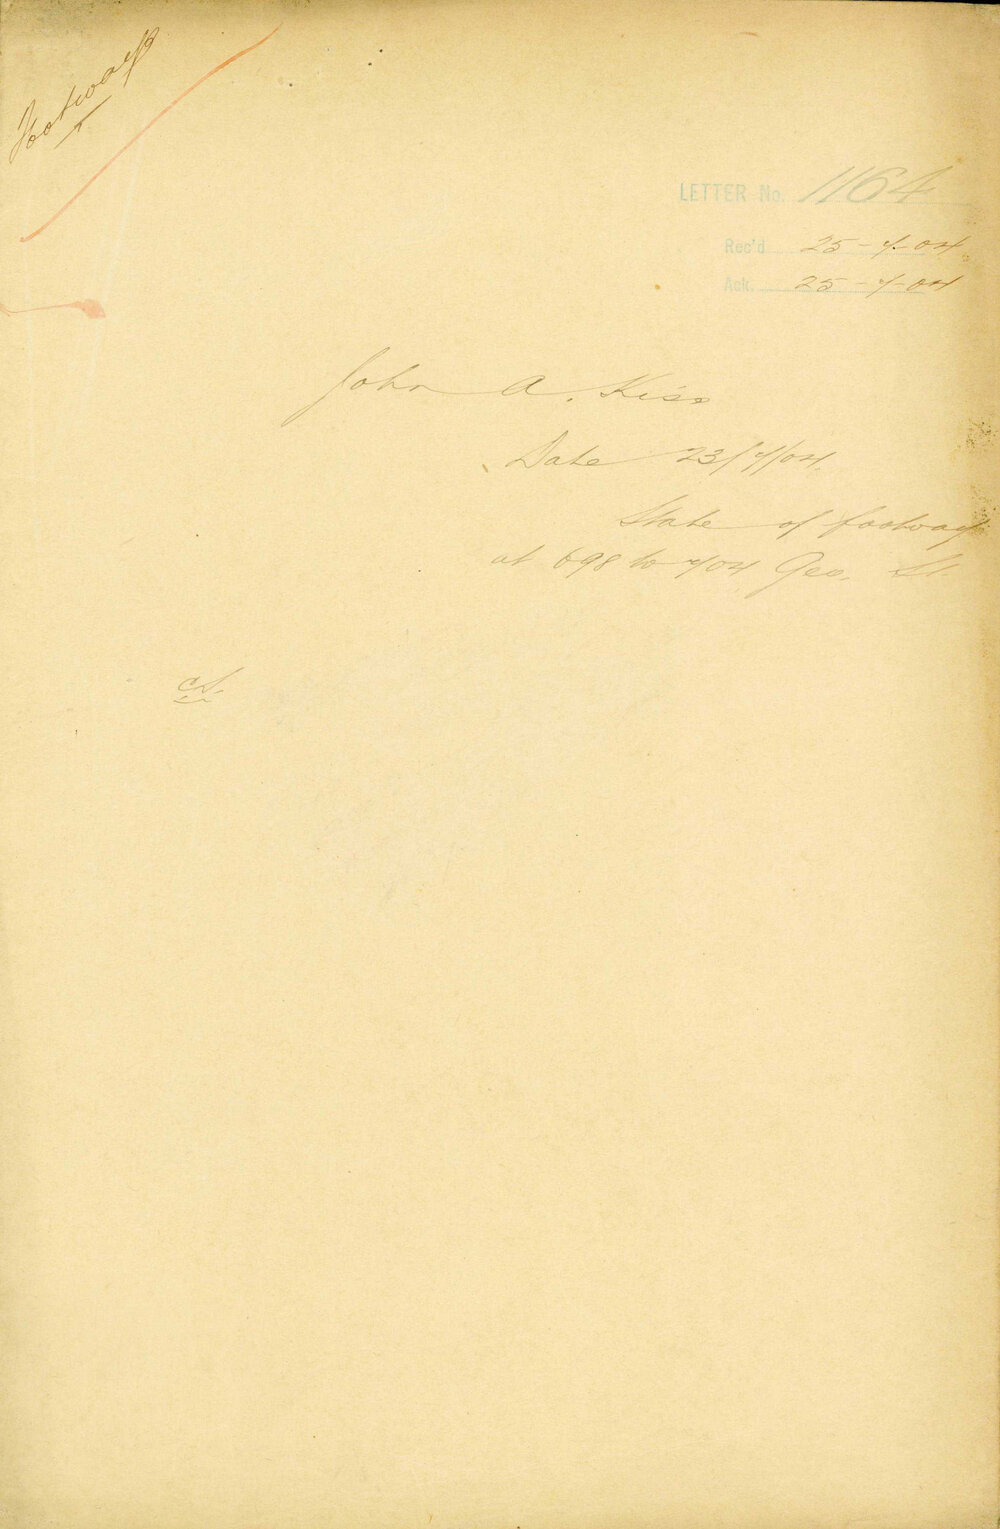 Footway
LETTER No. 1164
Rec'd 25-7-04
Ack. 25-7-04
John A. Kiss
Date 23/7/04
State of footway
at 698 to 704 Geo. St.